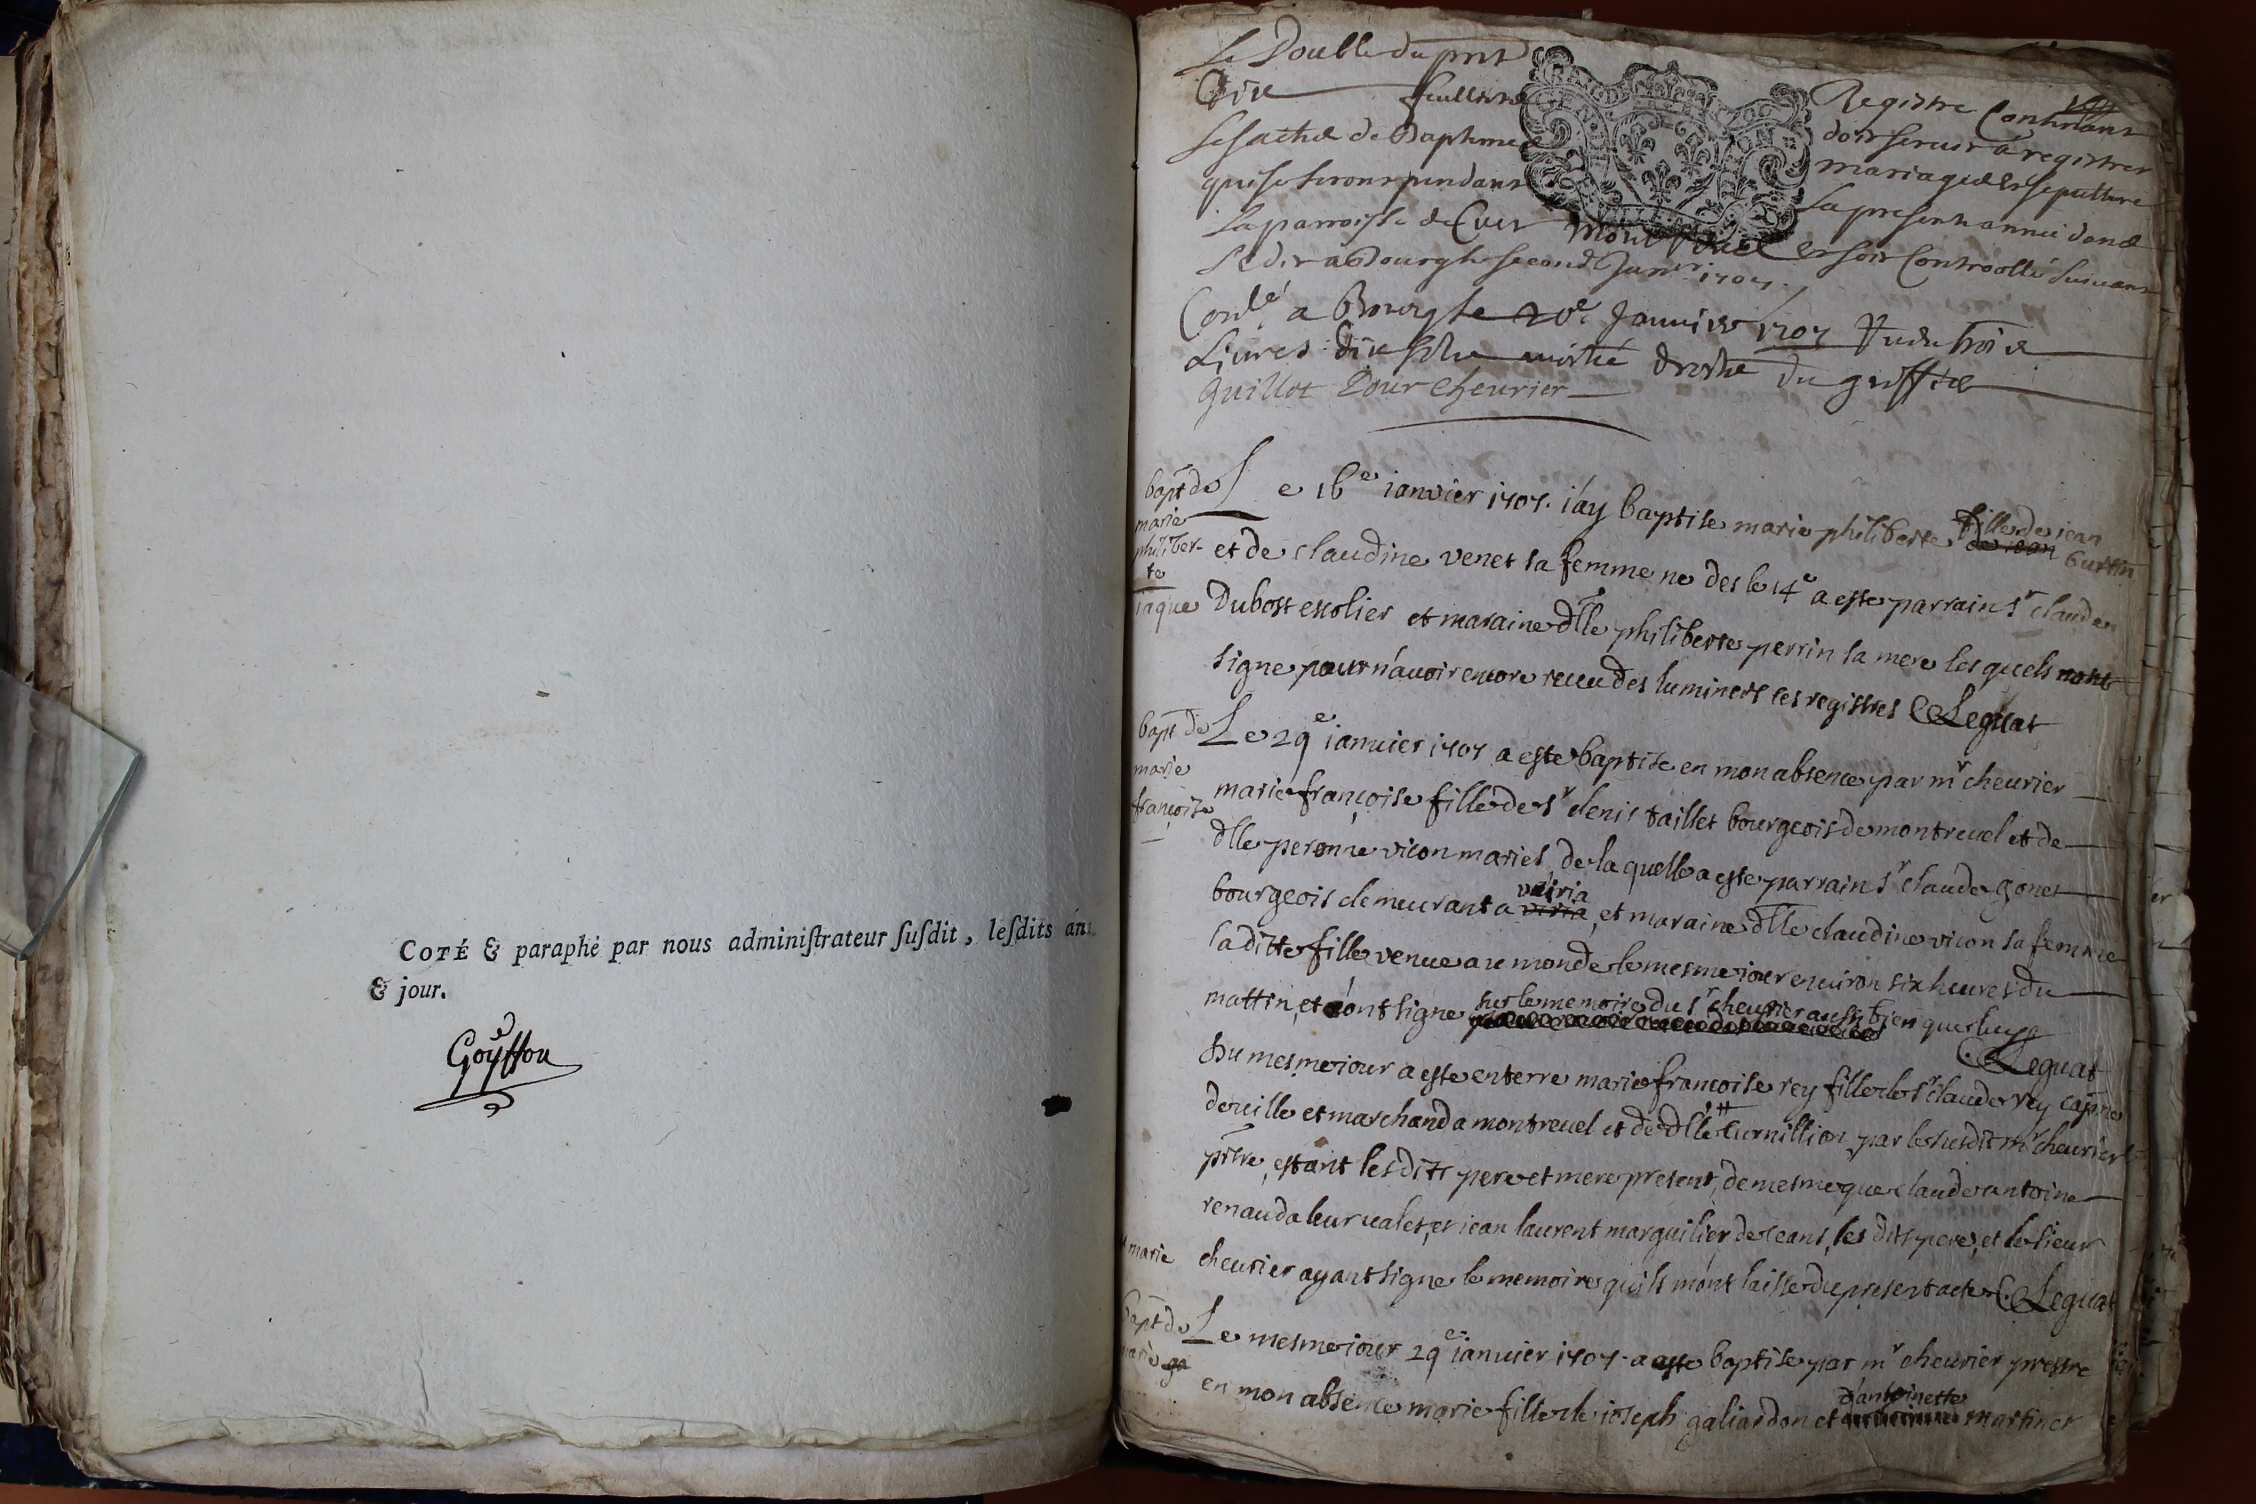 COTÉ & paraphé par nous adminiſtrateur ſuſdit, leſdits an
& jour.
Goyffon
Le Double du pnt
Registre Contenant
Dix feuillets
doit servir a registrer
les actes de Baptesmes
mariages et sepulture
qui se feront pendant
la presente année dans
la parroisse de Cuet Mont Revel et soit Controollé suivant
l'Edit a Bourg le second Janvr 1707.
Conllé a Bourg le 20e Janvier 1707
Livres dix sols moitié droits du greffe
guillot pour cheurier
bapt de
marie
philiber-
te
iaque
Le 16e ianvier 1707. iay baptise marie philiberte fille de iean
de iean burtin
et de claudine venet sa femme ne des le 14e a este parrain sr claude
Dubost escolier et maraine dlle philiberte perrin sa mere les quels nont
signe pour n'auoir encore receu des luminers les registres Leguat
bapt de
marie
françoise
Le 29e ianuier 1707 a este baptise en mon absence par mr cheurier
marie françoise fille de sr denis taillet bourgeois de montreuel et de
dlle peronne vicon maries, de la quelle a este parrain sr claude gonet
vairia
bourgeois demeurant a viria, et maraine dlle claudine vicon sa femme
la ditte fille venue au monde le mesme iour enuiron six heures du
mattin, et ont signe sur le memoire du sr cheurier aussi bien que luy
Leguat
Du mesme iour a este enterre marie françoise rey fille de sr claude rey capne
de ville et marchand a montreuel et de dlle turnillion par le susdit mr cheurier
ptre, estant les dits pere et mere present, de mesme que claude antoine
renaud leur valet, et iean laurent marguilier de ceans, les dits pere, et le sieur
marie
cheurier ayant signe le memoire qu'ils mont laisse du present acte Leguat
bapt de
marie ga
Le mesme iour 29e ianuier 1707. a este baptise par mr cheurier prestre
d'antoinette
en mon absence marie fille de ioseph galiardon et martinet